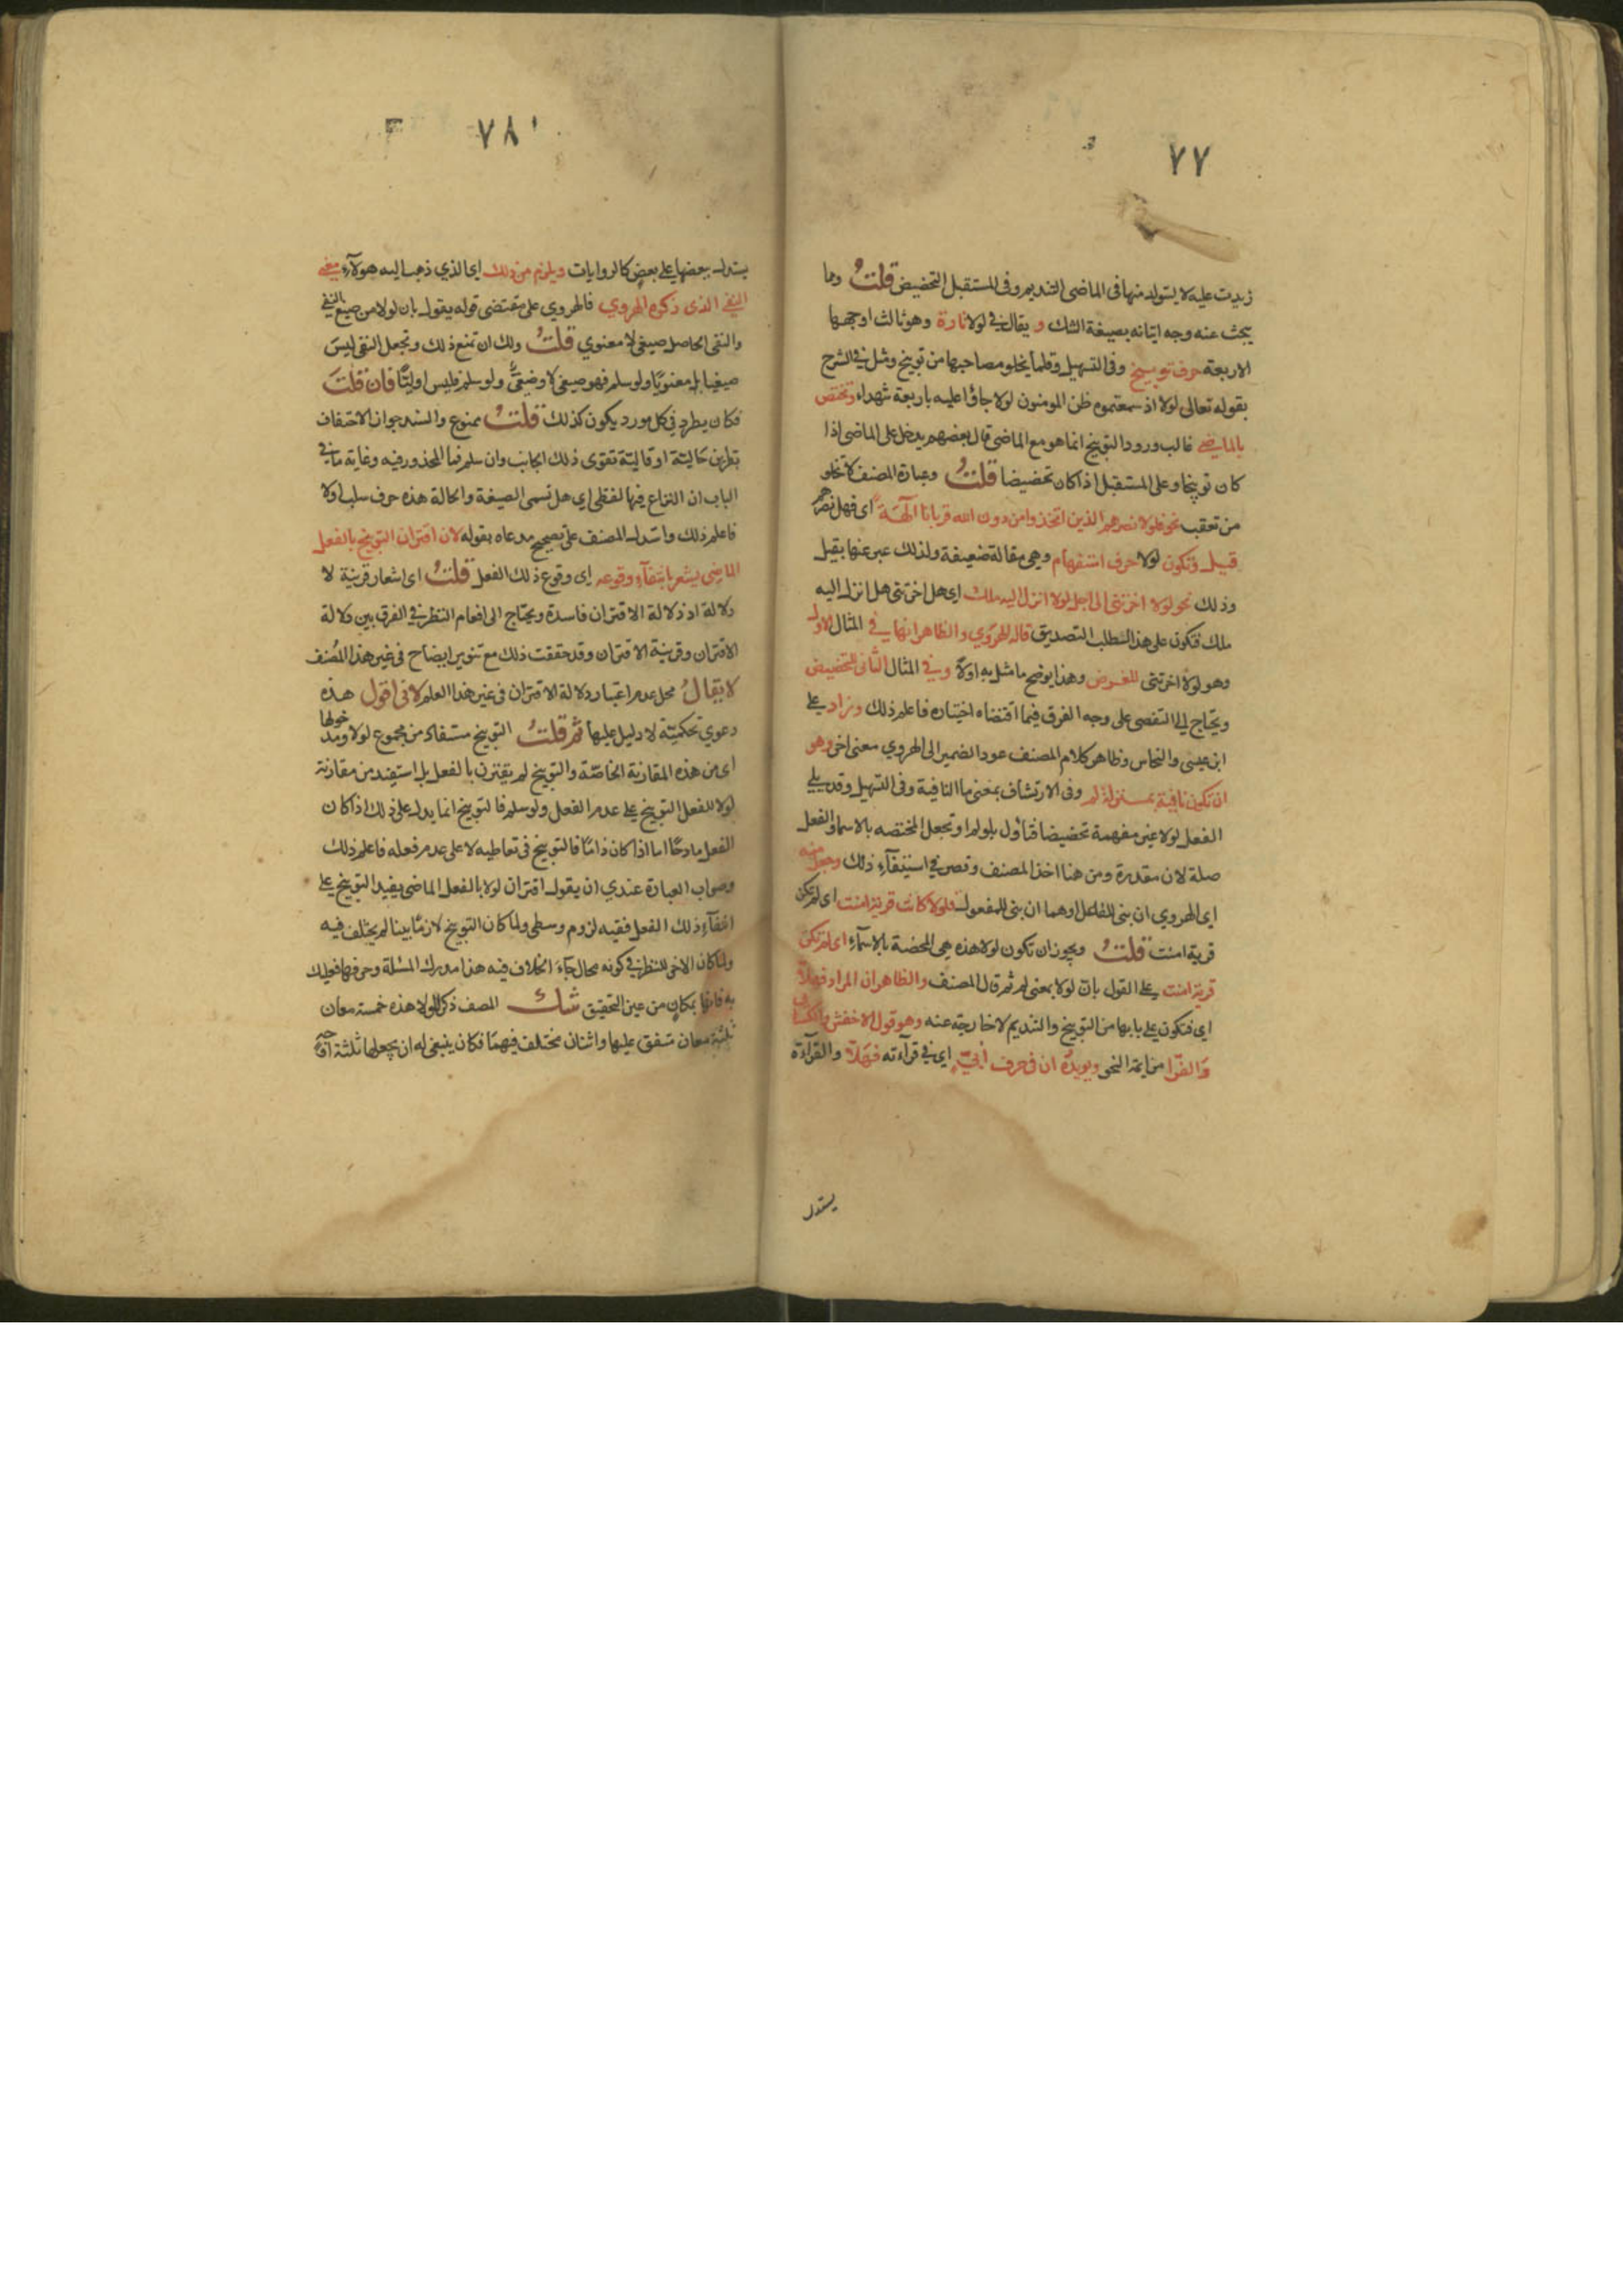 ٧٧
زيدت عليه لا يتولد منها في الماضي التنديم وفي المستقبل التحضيض قلتُ وما
يبحث عنه وجه اتيانه بصيغة الشك و يقال في لولا تارة وهو ثالث اوجهها
الاربعة حرف توبيخ وفي التسهيل وقلما يخلو مصاحبها من توبيخ ومثل في الشرح
بقوله تعالى لولا اذ سمعتموه ظن المومنون لولا جاؤا عليه باربعة شهداء وتختص
بالماضي غالب ورود التوبيخ انما هو مع الماضي قال بعضهم يدخل على الماضي اذا
كان توبيخا وعلى المستقبل اذا كان تحضيضا قلتُ وعبارة المصنف لا تخلو
من تعقب نحو فلولا نصرهم الذين اتخذوا من دون الله قربانا آلهة اى فهل نصرهم
قيل وتكون لولا حرف استفهام وهي مقالة ضعيفة ولذلك عبر عنها بقيل
وذلك نحو لولا اخرتني الى اجل لولا انزل اليه ملك اي هل اخرتني هل انزل اليه
ملك فتكون على هذا لطلب التصديق قاله الهروي والظاهر انها في المثال الاول
وهو لولا اخرتني للعرض وهذا يوضح ما مثل به اولاً وفي المثال الثاني للتحضيض
ويحتاج الى التقصى على وجه الفرق فيما اقتضاه اختياره فاعلم ذلك وزاد على
ابن عيسى والنحاس وظاهر كلام المصنف عود الضمير الى الهروي معنى اخر وهو
ان تكون نافية بمنزلة لم وفي الارتشاف بمعنى ما النافية وفي التسهيل وقد يلي
الفعل لولا غير مفهمة تحضيضا فتأول بلو لم او تجعل المختصه بالاسماء والفعل
صلة لان مقدرة ومن هنا اخذ المصنف وقصر في استيفآء ذلك وجعل منه
اي الهروي ان بني للفاعل اوهما ان بني للمفعول فلولا كانت قرية امنت اى لم تكن
قرية امنت قلتُ ويجوز ان تكون لولا هذه هي المحضة بالاسمآء اى لم تكن
قرية امنت على القول بان لولا بمعنى لم ثم قال المصنف والظاهر ان المراد فهلا
اي فتكون على بابها من التوبيخ والتنديم لا خارجة عنه وهو قول الاخفش والكسائي
وَالفرّا من ايمة النحو ويويده ان في حرف أبيّ اي في قرآءته فهَلاّ والقرآءة
يستدل
٧٨
يستدل ببعضها على بعض كالروايات ويلزم من ذلك اي الذي ذهب اليه هولآء معنى
النفي الذى ذكره الهروي فالهروي على مقتضى قوله يقول بان لولا من صيغ النفي
والنفي الحاصل صيغي لا معنوي قلتُ ولك ان تمنع ذلك وتجعل النفي ليسَ
صيغيا بل معنويًا ولو سلم فهو صيغي لا وضيعي ولو سلم فليس اوليًا فان قلتَ
فكان يطرد في كل مورد يكون كذلك قلتُ ممنوع والسند جواز الاحتفاف
بقراين حَاليّة او قاليّة تقوى ذلك الجانب وان سلم فما المحذور فيه وغاية ما في
الباب ان النزاع فيها لفظي اي هل تسمى الصيغة والحالة هذه حرف سلب او لا
فاعلم ذلك واستدل المصنف على تصحيح مدعاه بقوله لان اقتران التوبيخ بالفعل
الماضي يشعر بانتفآء وقوعه اى وقوع ذلك الفعل قلتُ اى اشعار قرينة لا
دلالة اذ دلالة الاقتران فاسدة ويحتاج الى انعام النظر في الفرق بين دلالة
الاقتران وقرينة الاقتران وقد حققت ذلك مع تنوير ايضاح في غير هذا المُصنف
لا يقالُ محل عدم اعتبار دلالة الاقتران في غير هذا العلم لا في اقول هذه
دعوى تحكميّة لا دليل عليها ثم قلتُ التوبيخ مستفاد من مجموع لولا ومدخولها
اى من هذه المقارنة الخاصّة والتوبيخ لم يقترن بالفعل بل استفيد من مقارنة
لولا للفعل التوبيخ على عدم الفعل ولو سلم فالتوبيخ انما يدل على ذلك اذا كان
الفعل مادحًا اما اذا كان ذامًا فالتوبيخ في تعاطيه لا على عدم فعله فاعلم ذلك
وصواب العبارة عندي ان يقول اقتران لولا بالفعل الماضي يفيد التوبيخ على
انتفآء ذلك الفعل ففيه لزوم وسطى ولما كان التوبيخ لازمًا بينا لم يختلف فيه
ولما كان الاخر للنظر في كونه مجال جآءَ الخلاف فيه هذا مدرك المسئلة وحرفها فعليك
به فانها بمكانٍ من عين التحقيق شك المصنف ذكر للولا هذه خمسة معان
ثلثة معان متفق عليها واثنان مختلف فيهما فكان ينبغي له ان يجعلها ثلثة